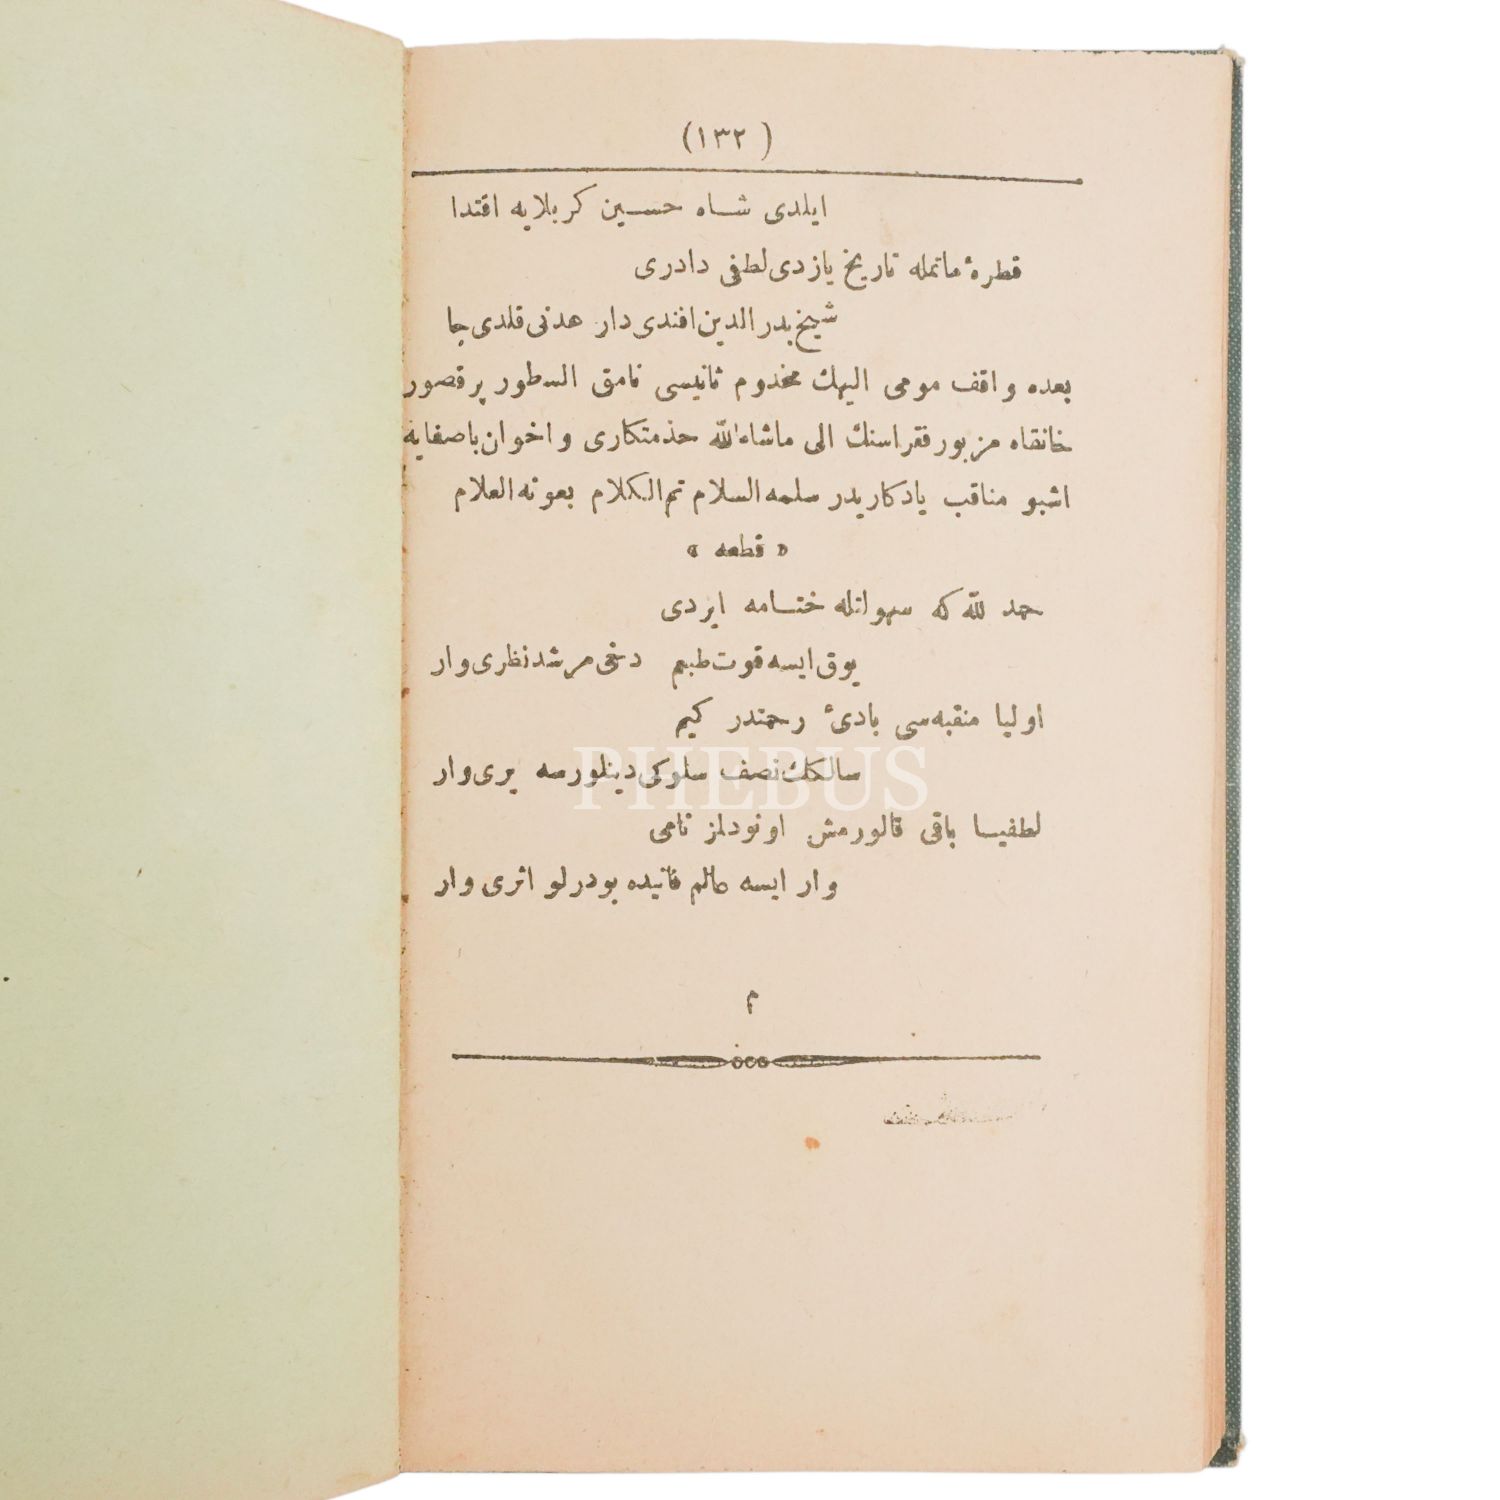 (١٣٢)
ايلدى شاه حسين كربلايه اقتدا
قطرهٔ ماتمله تاريخ يازدى لطفى دادرى
شيخ بدرالدين افندى دار هدنى قلدى جا
بعده واقف مومى اليهك مخدوم ثانيسى نامق السطور پر قصور
خانقاه مزبور فقراسنك الى ماشاءالله خدمتكارى واخوان باصفايه
اشبو مناقب يادكاريدر سلمه السلام تم الكلام بعونه العلام
« قطعه »
حمد لله كه سهولتله ختامه ايردى
يوق ايسه قوت طبعم دخى مرشد نظرى وار
اوليا منقبه‌سى بادئ رحمتدر كيم
PHEBUS
سالكك نصف سلوكى دينلورسه يرى وار
لطفيا باقى قالورمش اونودلمز نامى
وار ايسه عالم فانيده بودرلو اثرى وار
م